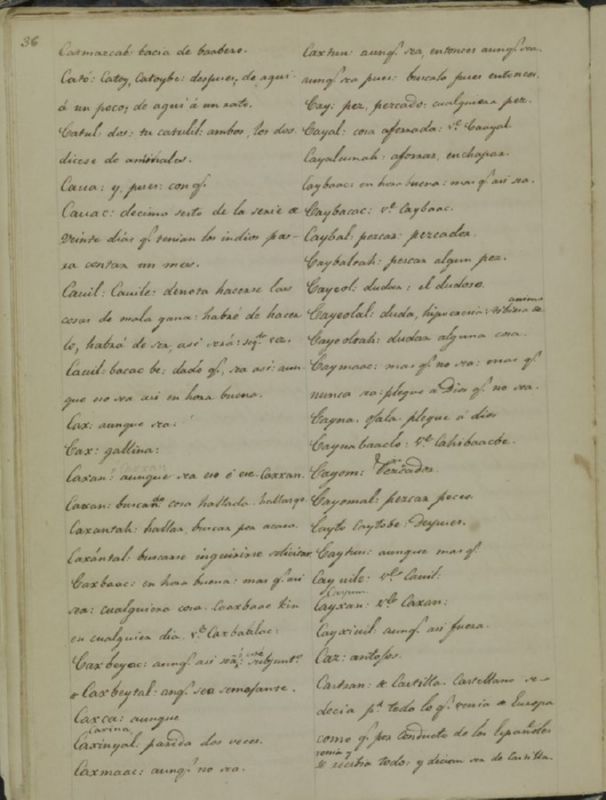 36
Catmazcab: bacia de barbero.
Cató: Catoy, Catoybe: despues, de aqui
á un poco, de aqui á un rato.
Catul: dos: tu catulil: ambos, los dos
dicese de animales.
Caua: y, pues: con q.
Cauac: decimo sesto de la serie de
veinte dias q. tenian los indios pa-
ra contar un mes.
Cauil: Cauile: denota hacerse las
cosas de mala gana: habré de hacer
lo, habrá de ser, así será:
Cauil: bacac be: dado q. sea asi: aun
que eso sea asi en hora buena.
Cax: aunque sea:
Cax: gallina:
Caxan: aunque sea eso ó ese Caxxan.
Caxan: buscando cosa hallada. hallazgo
Caxantah: hallar, buscar por acaso.
Caxántal: buscarse inquirirse solicitar
Caxbaac: en hora buena: mas q. asi
sea: cualquiera cosa. Caaxbaac kin
en cualquier dia. v.e Caxbatilac:
Caxbeyac: aunq. asi sea:
Caxbeytal: aunq. sea semejante.
Caxca: aunque
Caxinyal. parida dos veces.
Caxmaac: aunq. no sea.
Caxtun: aunq. sea, entonces aunq. sea.
aunq. sea pues: buscalo pues entonces.
Cay: pez, pescado: cualquiera pez.
Cayal: cosa aforrada: v.e Caayal
Cayalumah: aforrar, enchapar.
Caybaac: en hora buena: mas q. asi sea.
Caybacac: v.e Caybaac.
Caybal: pescar: pescador.
Caybaltah: pescar algun pez.
Cayeol: dudar: el dudoso.
Cayeolal: duda, hipocresia:
Cayeoltah: dudar alguna cosa.
Caymaac: mas q. no sea: mas q.
nunca sea: plegue a Dios q. no sea.
Cayna. ojala plegue á dios
Caynabaaclo: V.e Cahibaacbe.
Cayom: Pescados.
Cayomal: pescar peces.
Cayto Caytobe: Despues.
Caytun: aunque mas q.
Cay uile: v.e Cauil:
Cayxan: v.e Caxan:
Cayxiuil: aunq. asi fuera.
Caz: antojos.
Caztran: de Castilla. Castellano se
decia p.a todo lo q. venia de Europa
como q. por conducto de los Españoles
se recibia todo: y decian ser de Castilla.